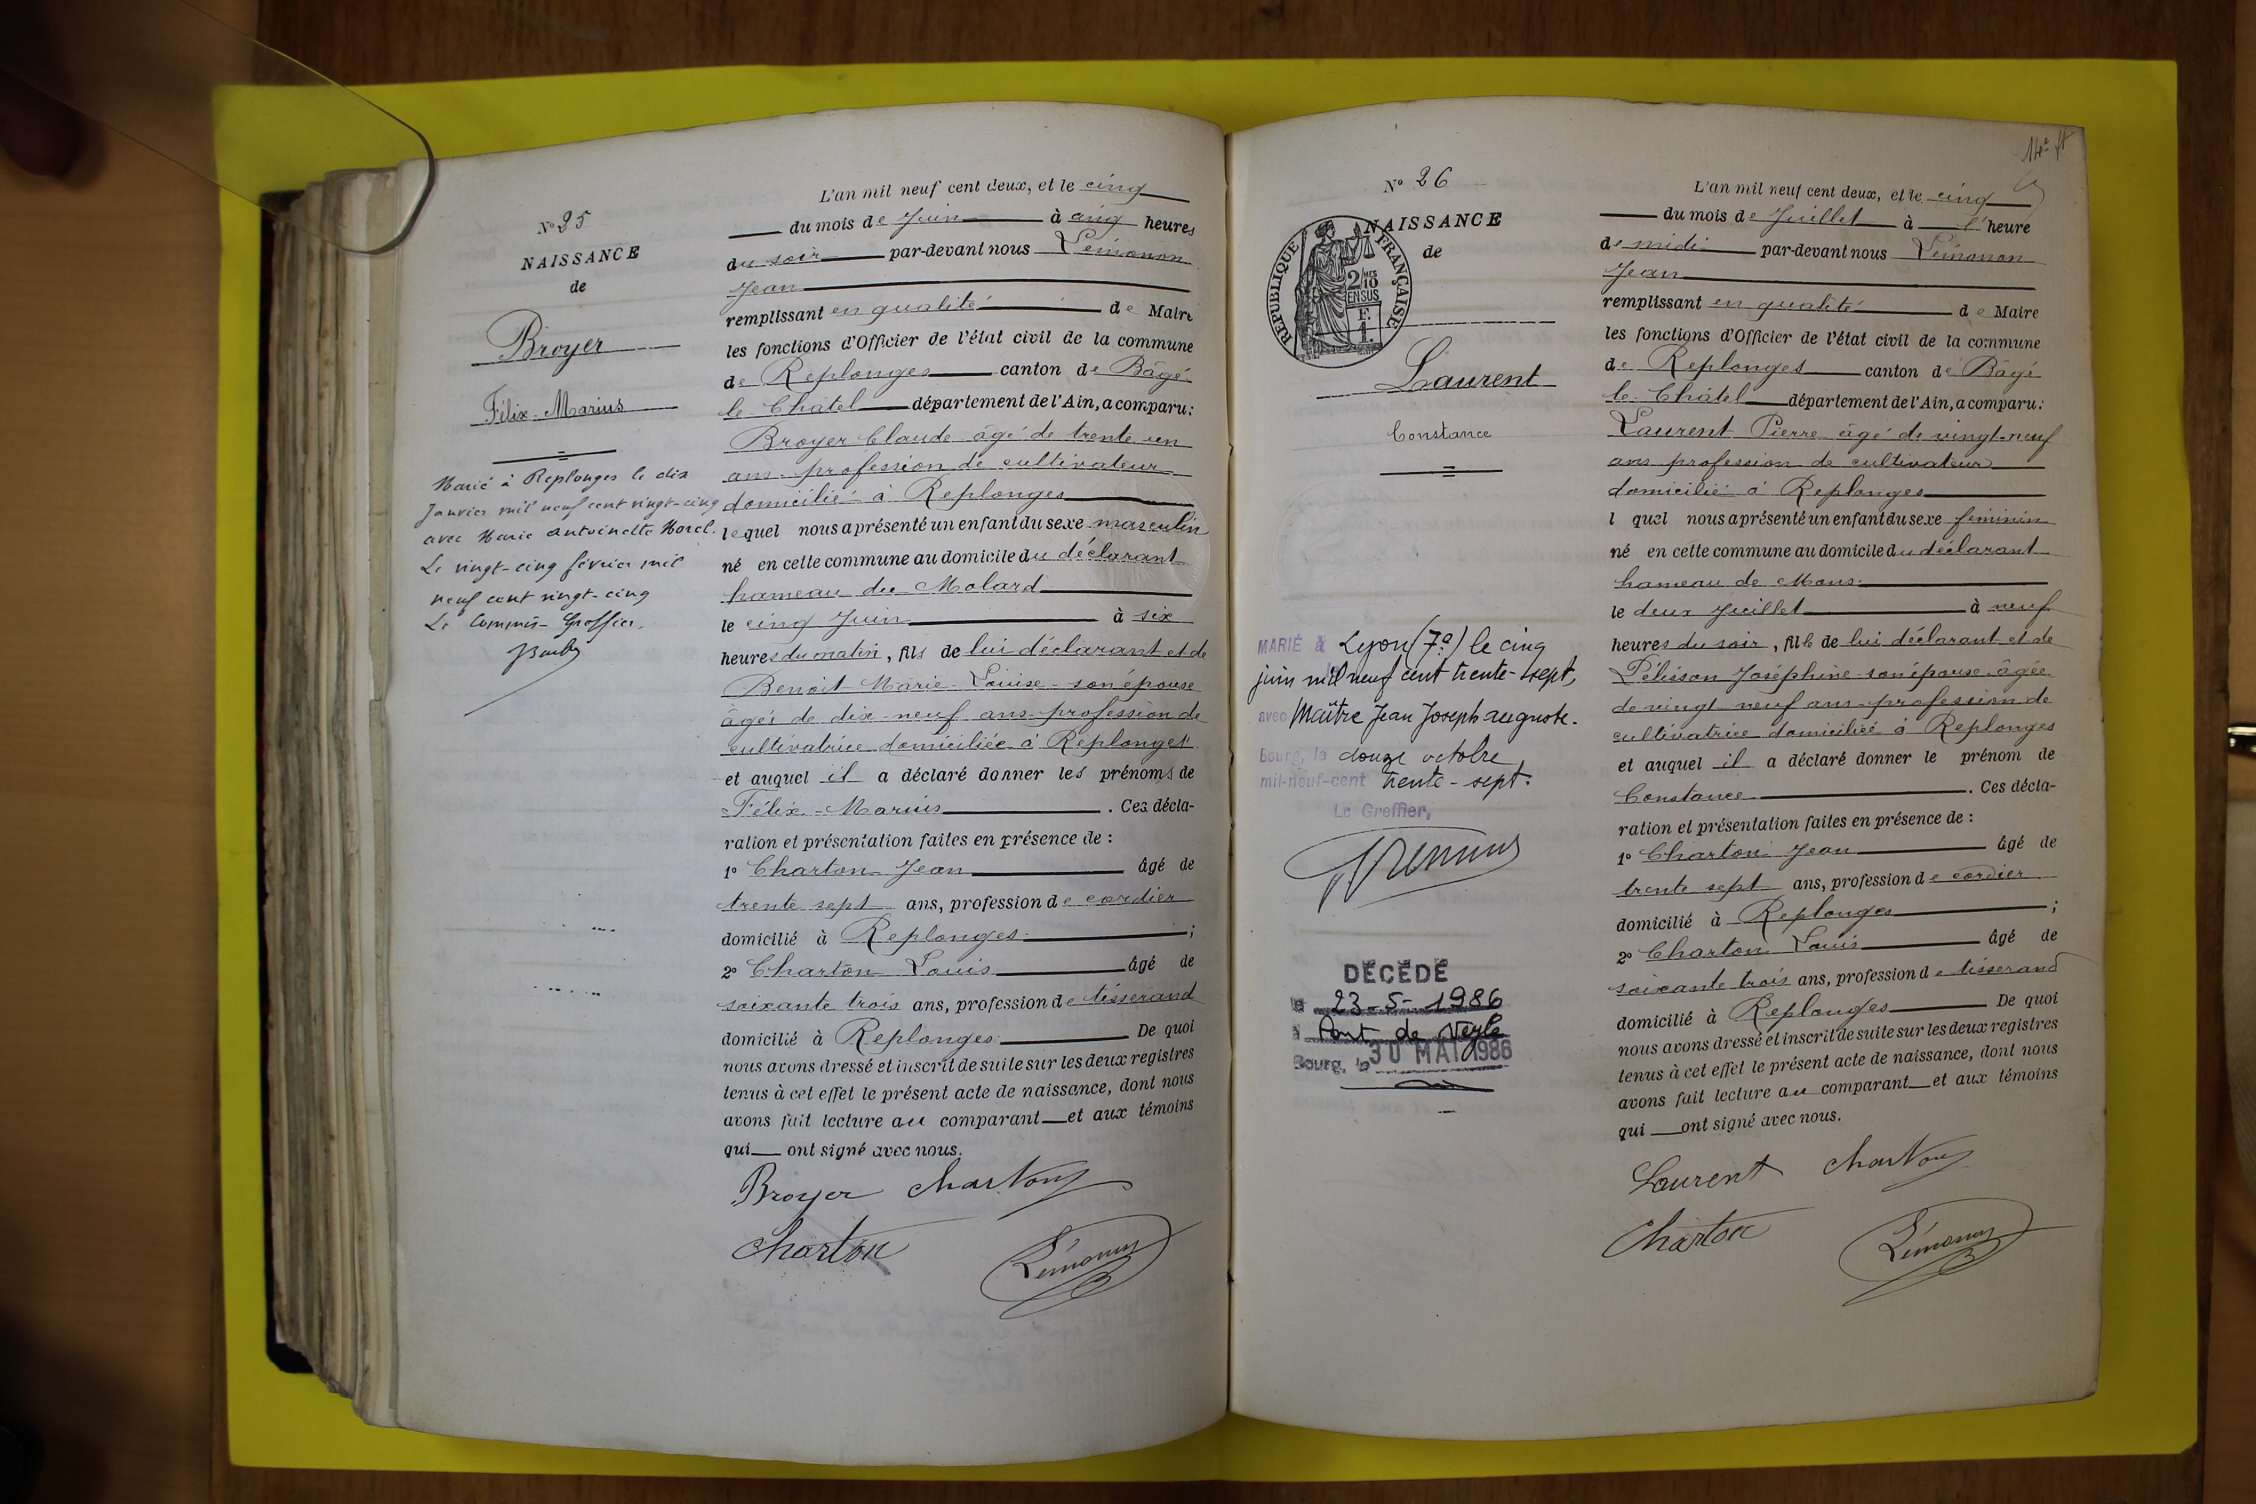 N° 25
NAISSANCE
de
Broyer
Félix-Marius
Marié à Replonges le dix
Janvier mil neuf cent vingt-cinq
avec Marie Antoinette Morel.
Le vingt-cinq février mil
neuf cent vingt-cinq
Le Commis-Greffier.
L'an mil neuf cent deux, et le cinq
du mois de Juin à cinq heures
du soir par-devant nous Lémonon
Jean
remplissant en qualité de Maire
les fonctions d'Officier de l'état civil de la commune
de Replonges canton de Bâgé
le Châtel département de l'Ain, a comparu:
Broyer Claude âgé de trente un
ans profession de cultivateur
domicilié à Replonges
lequel nous a présenté un enfant du sexe masculin
né en cette commune au domicile du déclarant
hameau du Molard
le cinq Juin à six
heures du matin, fils de lui déclarant et de
Benoit Marie-Louise son épouse
âgée de dix-neuf ans profession de
cultivatrice domiciliée à Replonges
et auquel il a déclaré donner les prénoms de
Félix-Marius. Ces décla-
ration et présentation faites en présence de :
1° Charton Jean âgé de
trente sept ans, profession de cordier
domicilié à Replonges ;
2° Charton Louis âgé de
soixante trois ans, profession de tisserand
domicilié à Replonges De quoi
nous avons dressé et inscrit de suite sur les deux registres
tenus à cet effet le présent acte de naissance, dont nous
avons fait lecture au comparant et aux témoins
qui ont signé avec nous.
Broyer Charton
Charton Lémonon
14e ft
N° 26
NAISSANCE
de
RÉPUBLIQUE FRANÇAISE
2/10 EN SUS
F.
1.
Laurent
Constance
MARIÉ à Lyon (7e) le cinq
juin mil neuf cent trente-sept,
avec Maître Jean Joseph auguste.
Bourg, le douze octobre
mil-neuf-cent trente-sept.
Le Greffier,
DÉCÉDÉ
le 23-5-1986
à Pont de Veyle
Bourg, le 30 MAI 1986
L'an mil neuf cent deux, et le cinq
du mois de Juillet à l'heure
de midi par-devant nous Lémonon
Jean
remplissant en qualité de Maire
les fonctions d'Officier de l'état civil de la commune
de Replonges canton de Bâgé
le Châtel département de l'Ain, a comparu:
Laurent Pierre âgé de vingt-neuf
ans profession de cultivateur
domicilié à Replonges
l quel nous a présenté un enfant du sexe féminin
né en cette commune au domicile du déclarant
hameau de Mons
le deux Juillet à neuf
heures du soir, fille de lui déclarant et de
Pélisson Joséphine son épouse âgée
de vingt neuf ans profession de
cultivatrice domiciliée à Replonges
et auquel il a déclaré donner le prénom de
Constance. Ces décla-
ration et présentation faites en présence de :
1° Charton Jean âgé de
trente sept ans, profession de cordier
domicilié à Replonges ;
2° Charton Louis âgé de
soixante trois ans, profession de tisserand
domicilié à Replonges De quoi
nous avons dressé et inscrit de suite sur les deux registres
tenus à cet effet le présent acte de naissance, dont nous
avons fait lecture au comparant et aux témoins
qui ont signé avec nous.
Laurent Charton
Charton Lémonon